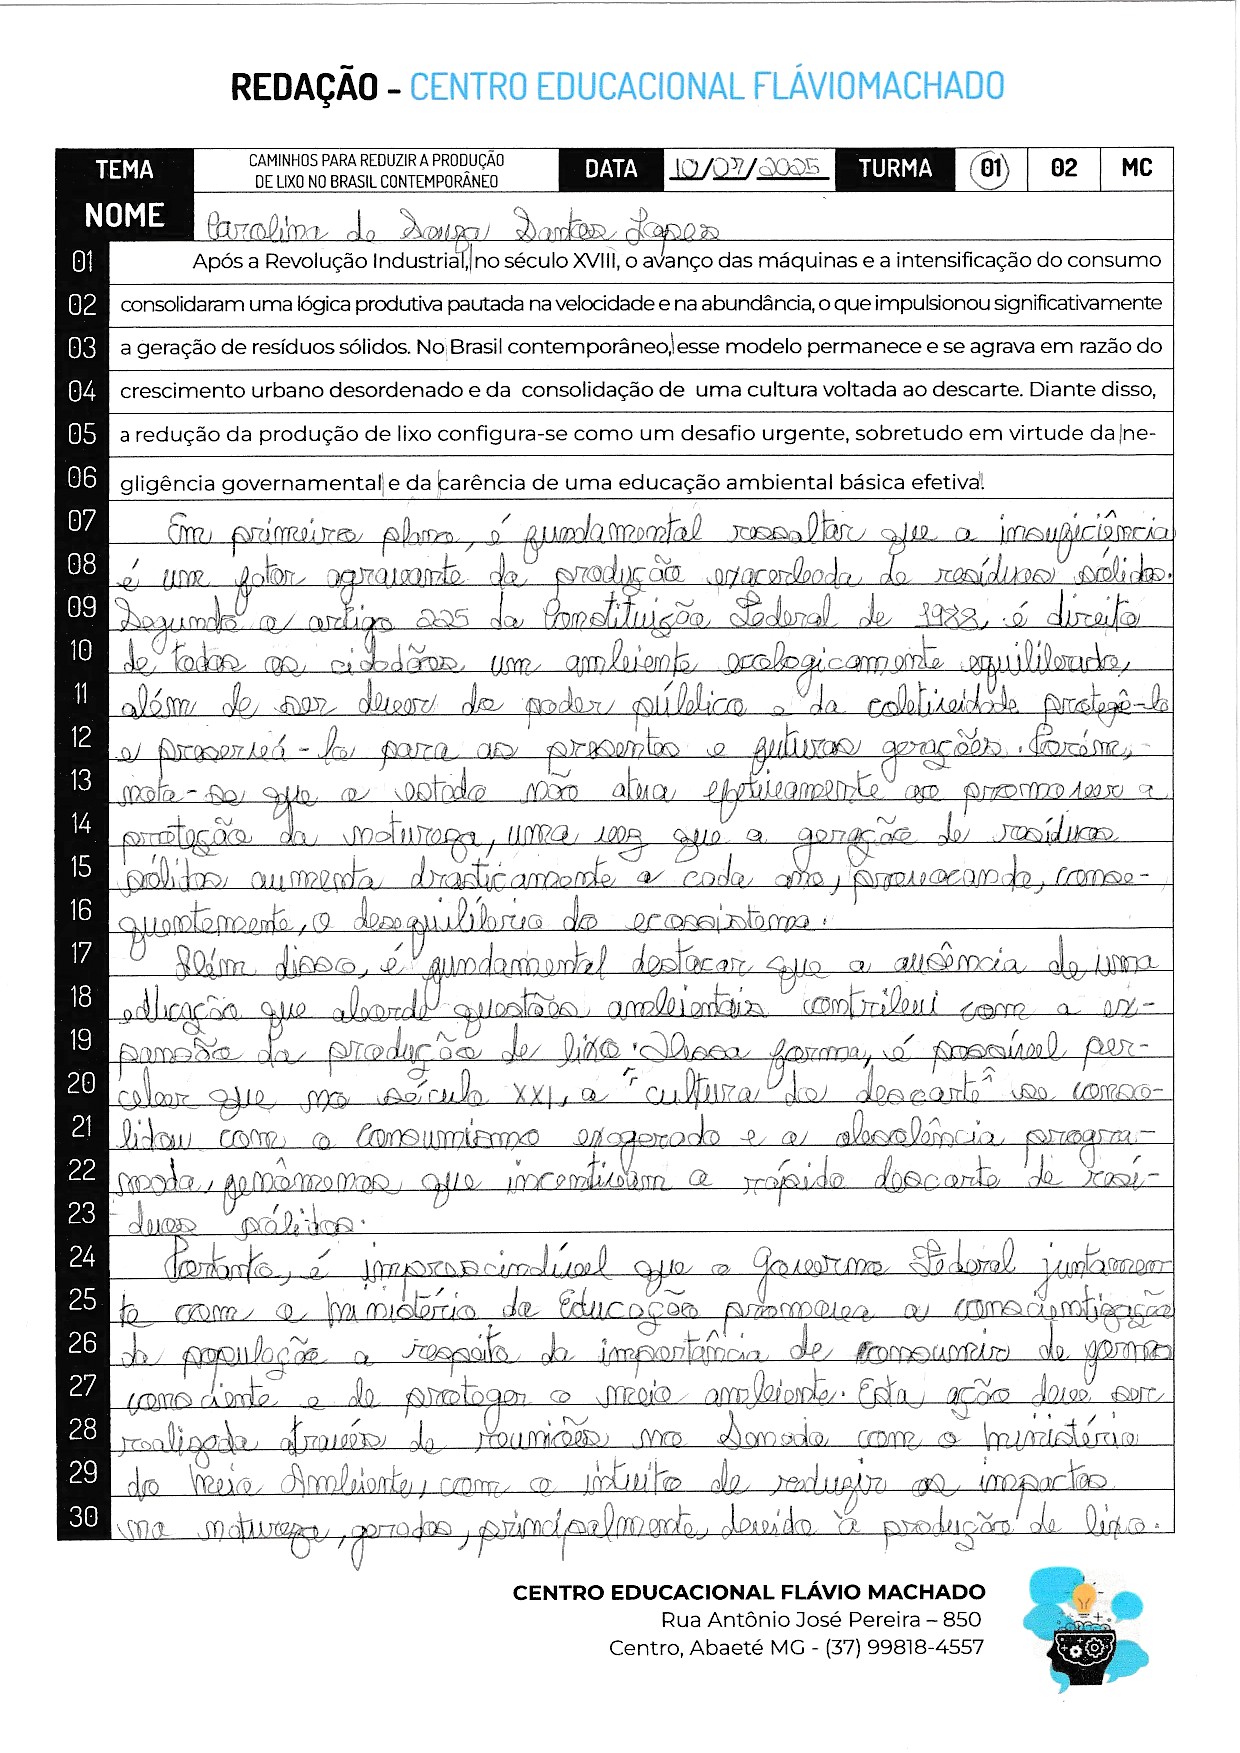 REDAÇÃO - CENTRO EDUCACIONAL FLÁVIOMACHADO
TEMA CAMINHOS PARA REDUZIR A PRODUÇÃO DE LIXO NO BRASIL CONTEMPORÂNEO DATA 10/07/2025 TURMA 01 02 MC
NOME Carolina de Souza Santos Lopes
01 Após a Revolução Industrial, no século XVIII, o avanço das máquinas e a intensificação do consumo
02 consolidaram uma lógica produtiva pautada na velocidade e na abundância, o que impulsionou significativamente
03 a geração de resíduos sólidos. No Brasil contemporâneo, esse modelo permanece e se agrava em razão do
04 crescimento urbano desordenado e da consolidação de uma cultura voltada ao descarte. Diante disso,
05 a redução da produção de lixo configura-se como um desafio urgente, sobretudo em virtude da ne-
06 gligência governamental e da carência de uma educação ambiental básica efetiva.
07 Em primeiro plano, é fundamental ressaltar que a insuficiência
08 é um fator agravante da produção exacerbada de resíduos sólidos.
09 Segundo o artigo 225 da Constituição Federal de 1988, é direito
10 de todos os cidadãos um ambiente ecologicamente equilibrado,
11 além de ser dever do poder público e da coletividade protegê-lo
12 e preservá-lo para as presentes e futuras gerações. Porém,
13 nota-se que o estado não atua efetivamente ao promover a
14 proteção da natureza, uma vez que a geração de resíduos
15 sólidos aumenta drasticamente a cada ano, provocando, conse-
16 quentemente, o desequilíbrio do ecossistema.
17 Além disso, é fundamental destacar que a ausência de uma
18 educação que aborde questões ambientais contribui com a ex-
19 pansão da produção de lixo. Dessa forma, é possível per-
20 ceber que no século XXI, a "cultura do descarte" se conso-
21 lidou com o consumismo exagerado e a obsolência progra-
22 mada, fenômenos que incentivam o rápido descarte de resí-
23 duos sólidos.
24 Portanto, é imprescindível que o Governo Federal juntamen
25 te com o Ministério da Educação promova a conscientização
26 da população a respeito da importância de consumir de forma
27 consciente e de proteger o meio ambiente. Esta ação deve ser
28 realizada através de reuniões no Senado com o Ministério
29 do Meio Ambiente, com o intuito de reduzir os impactos
30 na natureza, gerados, principalmente, devido à produção de lixo.
CENTRO EDUCACIONAL FLÁVIO MACHADO
Rua Antônio José Pereira – 850
Centro, Abaeté MG - (37) 99818-4557